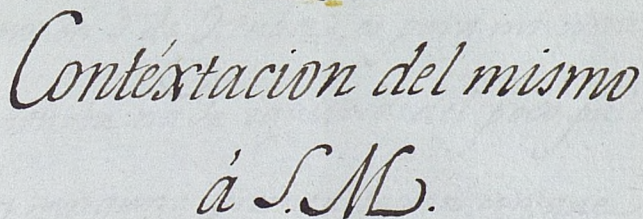 Contéxtacion del mismo
á S. M.